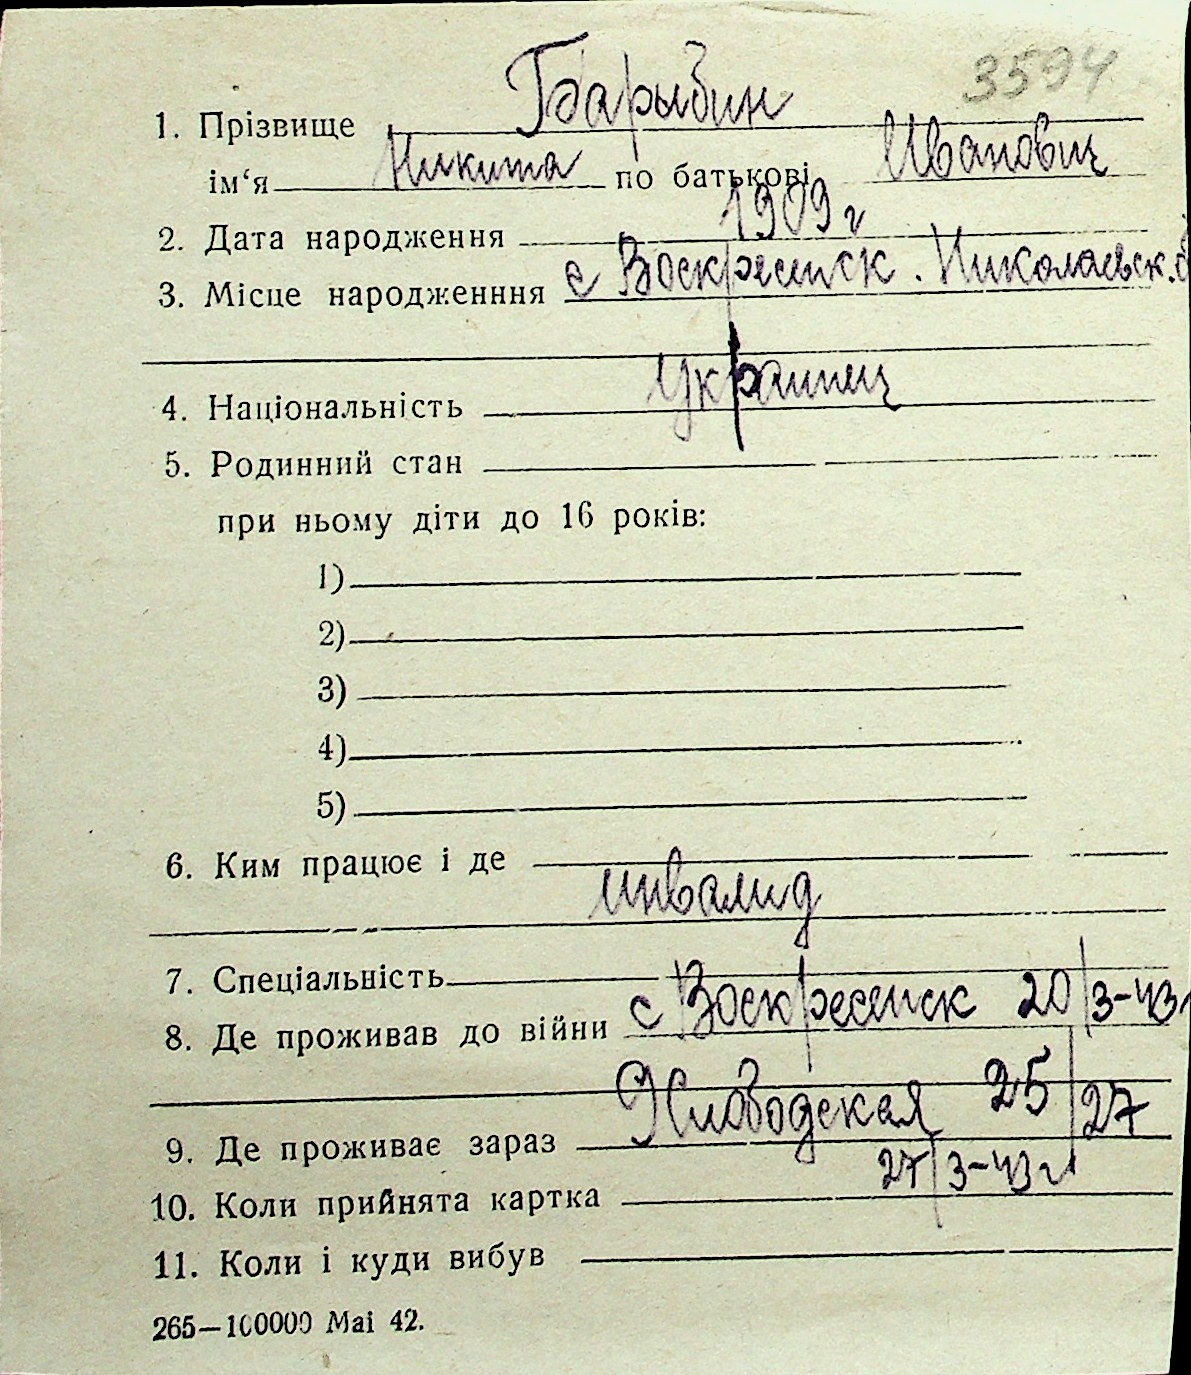 3594
1. Прізвище Барыбин
ім‘я Никита по батькові Иванович
2. Дата народження 1909 г
3. Місце народженння с Воскресенск. Николаевск.
4. Національність Украинец
5. Родинний стан
при ньому діти до 16 років:
1)
2)
3)
4)
5)
6. Ким працює і де
инвалид
7. Спеціальність
8. Де проживав до війни с Воскресенск 20/3-43
9. Де проживає зараз Слободская 25/27
10. Коли прийнята картка 27/3-43 г
11. Коли і куди вибув
265—100000 Mai 42.